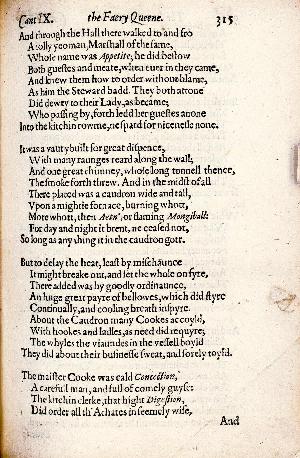 Cant IX. the Faery Queene. 315
And through the Hall there walked to and fro
A iolly yeoman, Marshall of the same,
Whose name was Appetite; he did bestow
Both guestes and meate, when euer in they came,
And knew them how to order without blame,
As him the Steward badd. They both attone
Did dewty to their Lady, as became;
Who passing by, forth ledd her guestes anone
Into the kitchin rowme, ne spard for nicenesse none.
It was a vaut ybuilt for great dispence,
With many raunges reard along the wall;
And one great chimney, whose long tonnell thence,
The smoke forth threw. And in the midst of all
There placed was a caudron wide and tall,
Vpon a mightie fornace, burning whott,
More whott, then Aetn', or flaming Mongiball:
For day and night it brent, ne ceased not,
So long as any thing it in the caudron gott.
But to delay the heat, least by mischaunce
It might breake out, and set the whole on fyre,
There added was by goodly ordinaunce,
An huge great payre of bellowes, which did styre
Continually, and cooling breath inspyre.
About the Caudron many Cookes accoyld,
With hookes and ladles, as need did requyre;
The whyles the viaundes in the vessell boyld
They did about their businesse sweat, and sorely toyld.
The maister Cooke was cald Concoction,
A carefull man, and full of comely guyse:
The kitchin clerke, that hight Digestion,
Did order all th'Achates in seemely wise,
And